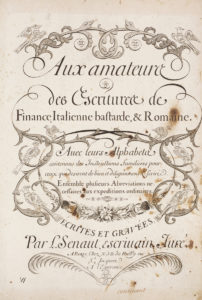 Aux amateurs
des Escritures de
Finance, Italienne bastarde, & Romaine.
Avec leurs Alphabets
contenans des Instructions familieres pour
ceux qui desirent de bien et diligemment Escrire,
Ensemble plusieurs Abreviations ne-
cessaires aux expeditions ordinaires.
ECRITES ET GRAVEES,
Par L. Senault, escrivain Juré